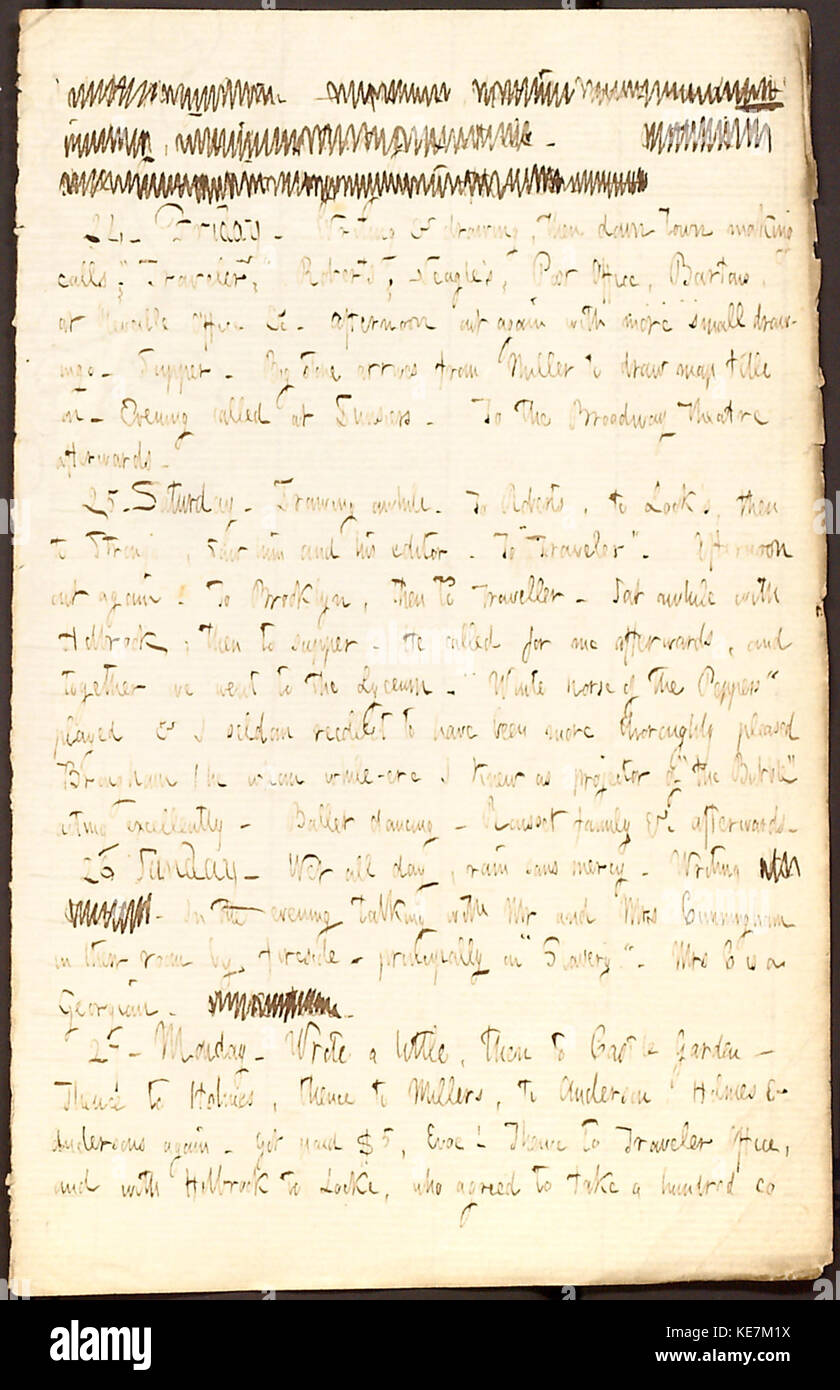 24 - Friday - Writing & drawing, then down town making
calls; "Traveler," Roberts', Neagle's, Post Office, Bartons,
at Office &c - Afternoon out again with more small draw-
ings - Supper - Big stone arrives from Miller to draw map title
on - Evening called at - To the Broadway Theatre
afterwards -
25 - Saturday - Drawing awhile. To Roberts, to Lock's, then
to Strong's, saw him and his editor. To "Traveler". Afternoon
out again. To Brooklyn, then to Traveller - Sat awhile with
Holbrook; then to supper - He called for me afterwards, and
together we went to the Lyceum - "White horse of the Peppers"
played & I seldom recollect to have been more thoroughly pleased
Brougham (he whom while-ere I knew as projector of "the Bubble"
acting excellently - Ballet dancing - Rousset family &c afterwards -
26 Sunday - Wet all day, rain sans mercy - Writing
- In the evening talking with Mr and Mrs Cunningham
in their room by fireside - principally on "Slavery". Mrs C is a
Georgian -
27 - Monday - Wrote a little, then to Castle Garden -
Thence to Holmes, thence to Millers, to Anderson, Holmes &
Andersons again - Got paid $5, Evoe! Thence to Traveler Office,
and with Holbrook to Locke, who agreed to take a hundred co
alamy
Image ID: KE7M1X
www.alamy.com